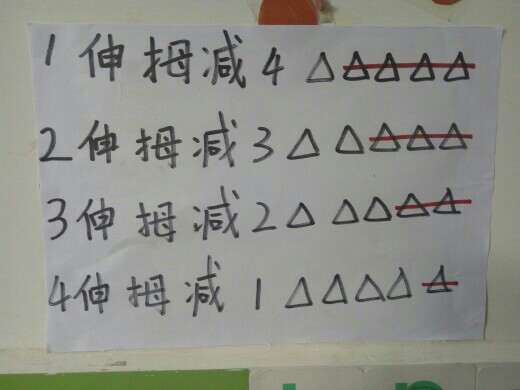 1伸拇减4 △△△△△
2伸拇减3 △△△△△
3伸拇减2 △△△△△
4伸拇减1 △△△△△